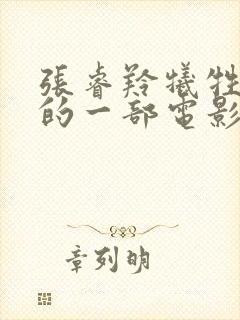 張睿羚犧牲
的一部電影
章列明